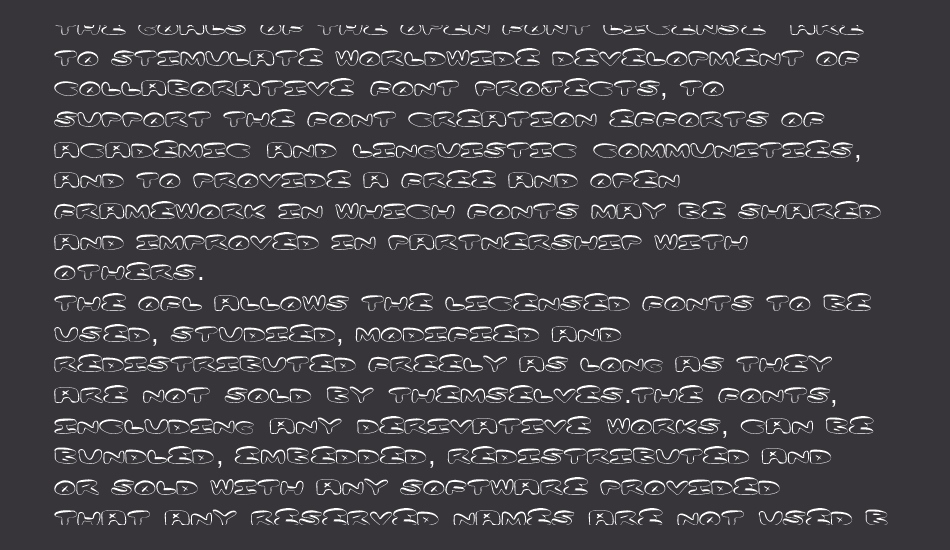 THE GOALS OF THE OPEN FONT LICENSE ARE
TO STIMULATE WORLDWIDE DEVELOPMENT OF
COLLABORATIVE FONT PROJECTS, TO
SUPPORT THE FONT CREATION EFFORTS OF
ACADEMIC AND LINGUISTIC COMMUNITIES,
AND TO PROVIDE A FREE AND OPEN
FRAMEWORK IN WHICH FONTS MAY BE SHARED
AND IMPROVED IN PARTNERSHIP WITH
OTHERS.
THE OFL ALLOWS THE LICENSED FONTS TO BE
USED, STUDIED, MODIFIED AND
REDISTRIBUTED FREELY AS LONG AS THEY
ARE NOT SOLD BY THEMSELVES.THE FONTS,
INCLUDING ANY DERIVATIVE WORKS, CAN BE
BUNDLED, EMBEDDED, REDISTRIBUTED AND
OR SOLD WITH ANY SOFTWARE PROVIDED
THAT ANY RESERVED NAMES ARE NOT USED B